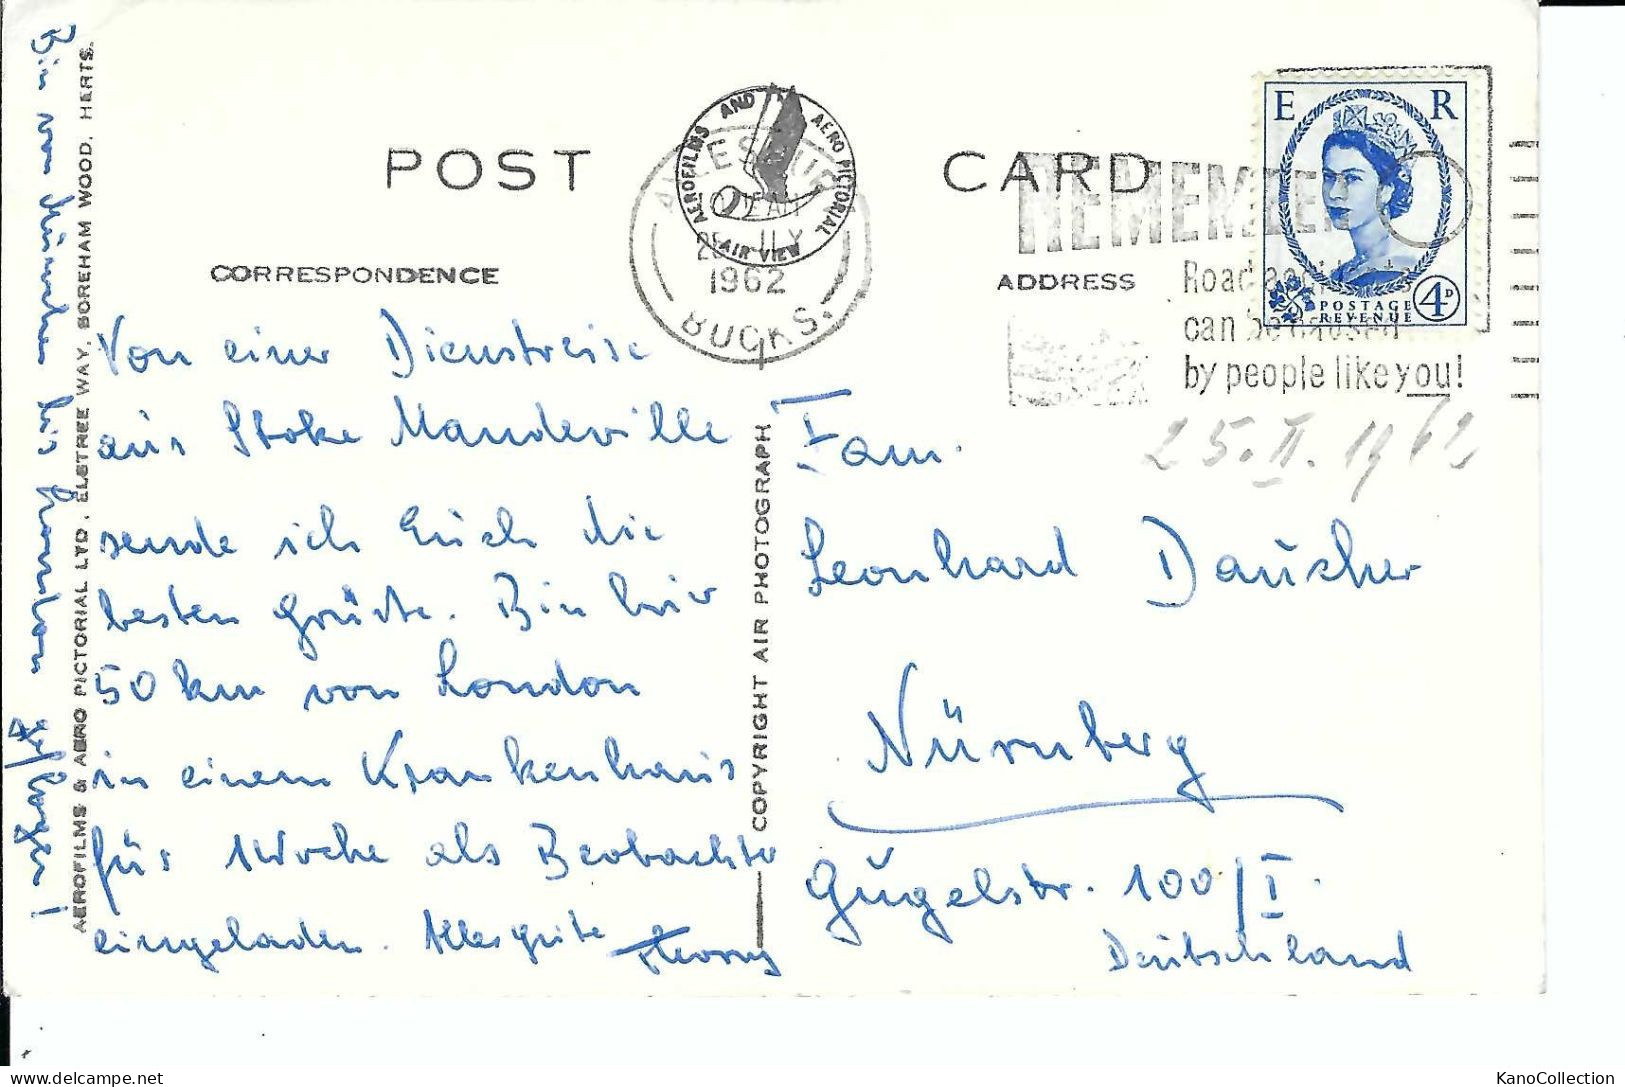 POST CARD
AEROFILMS AND AERO PICTORIAL
AIR VIEW
1962
BUCKS.
E R
POSTAGE
REVENUE
4D
REMEMBER
Road accidents
can be caused
by people like you!
CORRESPONDENCE
ADDRESS
25. II. 1962
Von einer Dienstreise
aus Stoke Mandeville
sende ich Euch die
besten Grüße. Bin hier
50 km von London
in einem Krankenhaus
für 1 Woche als Beobachter
eingeladen. Alles gute
Bin von München bis London geflogen!
AEROFILMS & AERO PICTORIAL LTD. ELSTREE WAY, BOREHAM WOOD. HERTS.
COPYRIGHT AIR PHOTOGRAPH
Fam.
Leonhard Dauscher
Nürnberg
Gugelstr. 100/I.
Deutschland
KanoCollection
delcampe.net